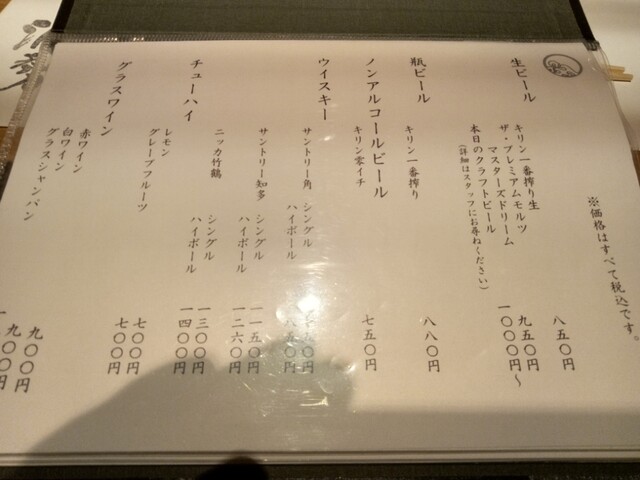 ※価格はすべて税込です。
生ビール
キリン一番搾り生 八五〇円
ザ・プレミアムモルツ
マスターズドリーム 九五〇円
本日のクラフトビール 一〇〇〇円～
(詳細はスタッフにお尋ねください)
瓶ビール
キリン一番搾り 八八〇円
ノンアルコールビール
キリン零イチ 七五〇円
ウイスキー
サントリー角 シングル
ハイボール
サントリー知多 シングル 一一五〇円
ハイボール 一二六〇円
ニッカ竹鶴 シングル 一三〇〇円
ハイボール 一四〇〇円
チューハイ
レモン 七〇〇円
グレープフルーツ 七〇〇円
グラスワイン
赤ワイン 九〇〇円
白ワイン 九〇〇円
グラスシャンパン